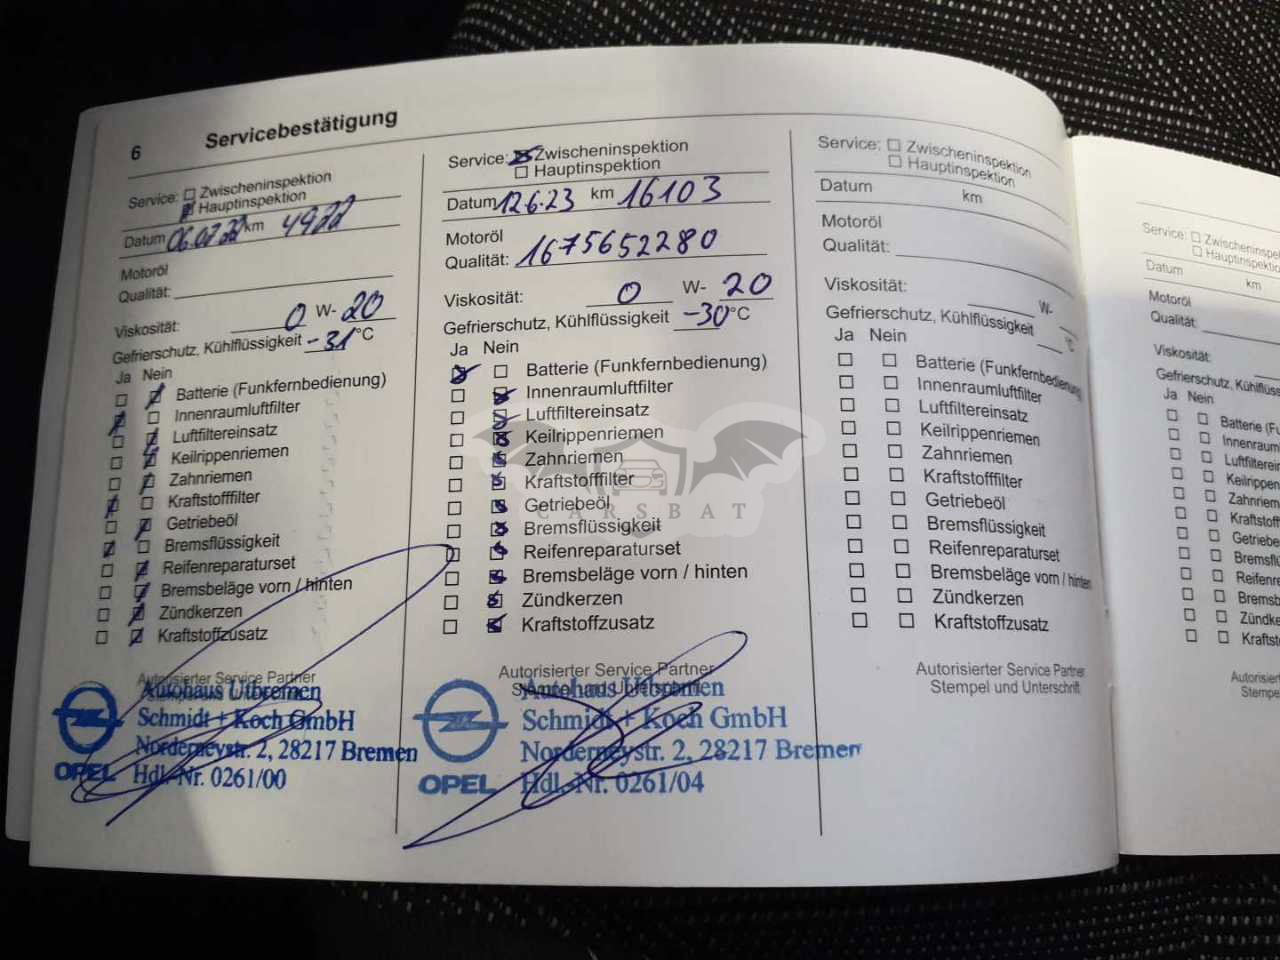 6 Servicebestätigung
Service: Zwischeninspektion
Hauptinspektion
Datum 06.07.22 km 4922
Motoröl
Qualität:
Viskosität: 0 W- 20
Gefrierschutz, Kühlflüssigkeit -31 °C
Ja Nein
Batterie (Funkfernbedienung)
Innenraumluftfilter
Luftfiltereinsatz
Keilrippenriemen
Zahnriemen
Kraftstofffilter
Getriebeöl
Bremsflüssigkeit
Reifenreparaturset
Bremsbeläge vorn / hinten
Zündkerzen
Kraftstoffzusatz
Autorisierter Service Partner
Autohaus Utbremen
Schmidt + Koch GmbH
Norderneystr. 2, 28217 Bremen
OPEL Hdl.-Nr. 0261/00
Service: Zwischeninspektion
Hauptinspektion
Datum 12.6.23 km 16103
Motoröl
Qualität: 1675652280
Viskosität: 0 W- 20
Gefrierschutz, Kühlflüssigkeit -30 °C
Ja Nein
Batterie (Funkfernbedienung)
Innenraumluftfilter
Luftfiltereinsatz
Keilrippenriemen
Zahnriemen
Kraftstofffilter
Getriebeöl
Bremsflüssigkeit
Reifenreparaturset
Bremsbeläge vorn / hinten
Zündkerzen
Kraftstoffzusatz
Autorisierter Service Partner
Stempel und Unterschrift
Autohaus Utbremen
Schmidt + Koch GmbH
Norderneystr. 2, 28217 Bremen
OPEL Hdl.-Nr. 0261/04
CARSBAT
Service: Zwischeninspektion
Hauptinspektion
Datum km
Motoröl
Qualität:
Viskosität: W-
Gefrierschutz, Kühlflüssigkeit °C
Ja Nein
Batterie (Funkfernbedienung)
Innenraumluftfilter
Luftfiltereinsatz
Keilrippenriemen
Zahnriemen
Kraftstofffilter
Getriebeöl
Bremsflüssigkeit
Reifenreparaturset
Bremsbeläge vorn / hinten
Zündkerzen
Kraftstoffzusatz
Autorisierter Service Partner
Stempel und Unterschrift
Service: Zwischeninspekt
Hauptinspektio
Datum km
Motoröl
Qualität:
Viskosität:
Gefrierschutz, Kühlflüssi
Ja Nein
Batterie (Fu
Innenraum
Luftfilterein
Keilrippen
Zahnriem
Kraftstoff
Getriebe
Bremsflü
Reifenre
Bremsb
Zündke
Kraftst
Autorisier
Stempe